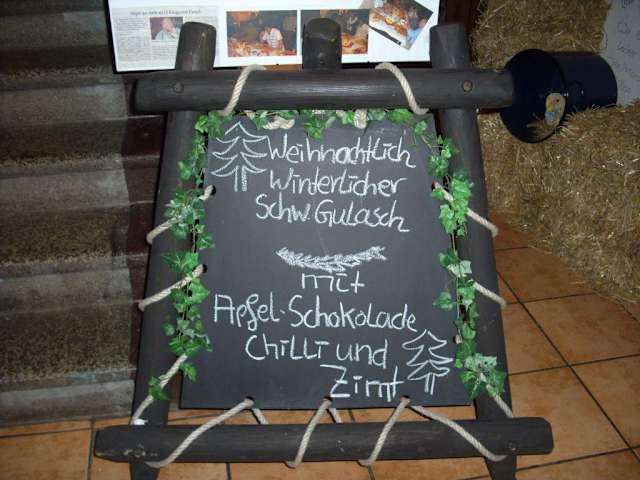 Weihnachtlich
Winterlicher
Schw. Gulasch
mit
Apfel-Schokolade
Chilli und
Zimt